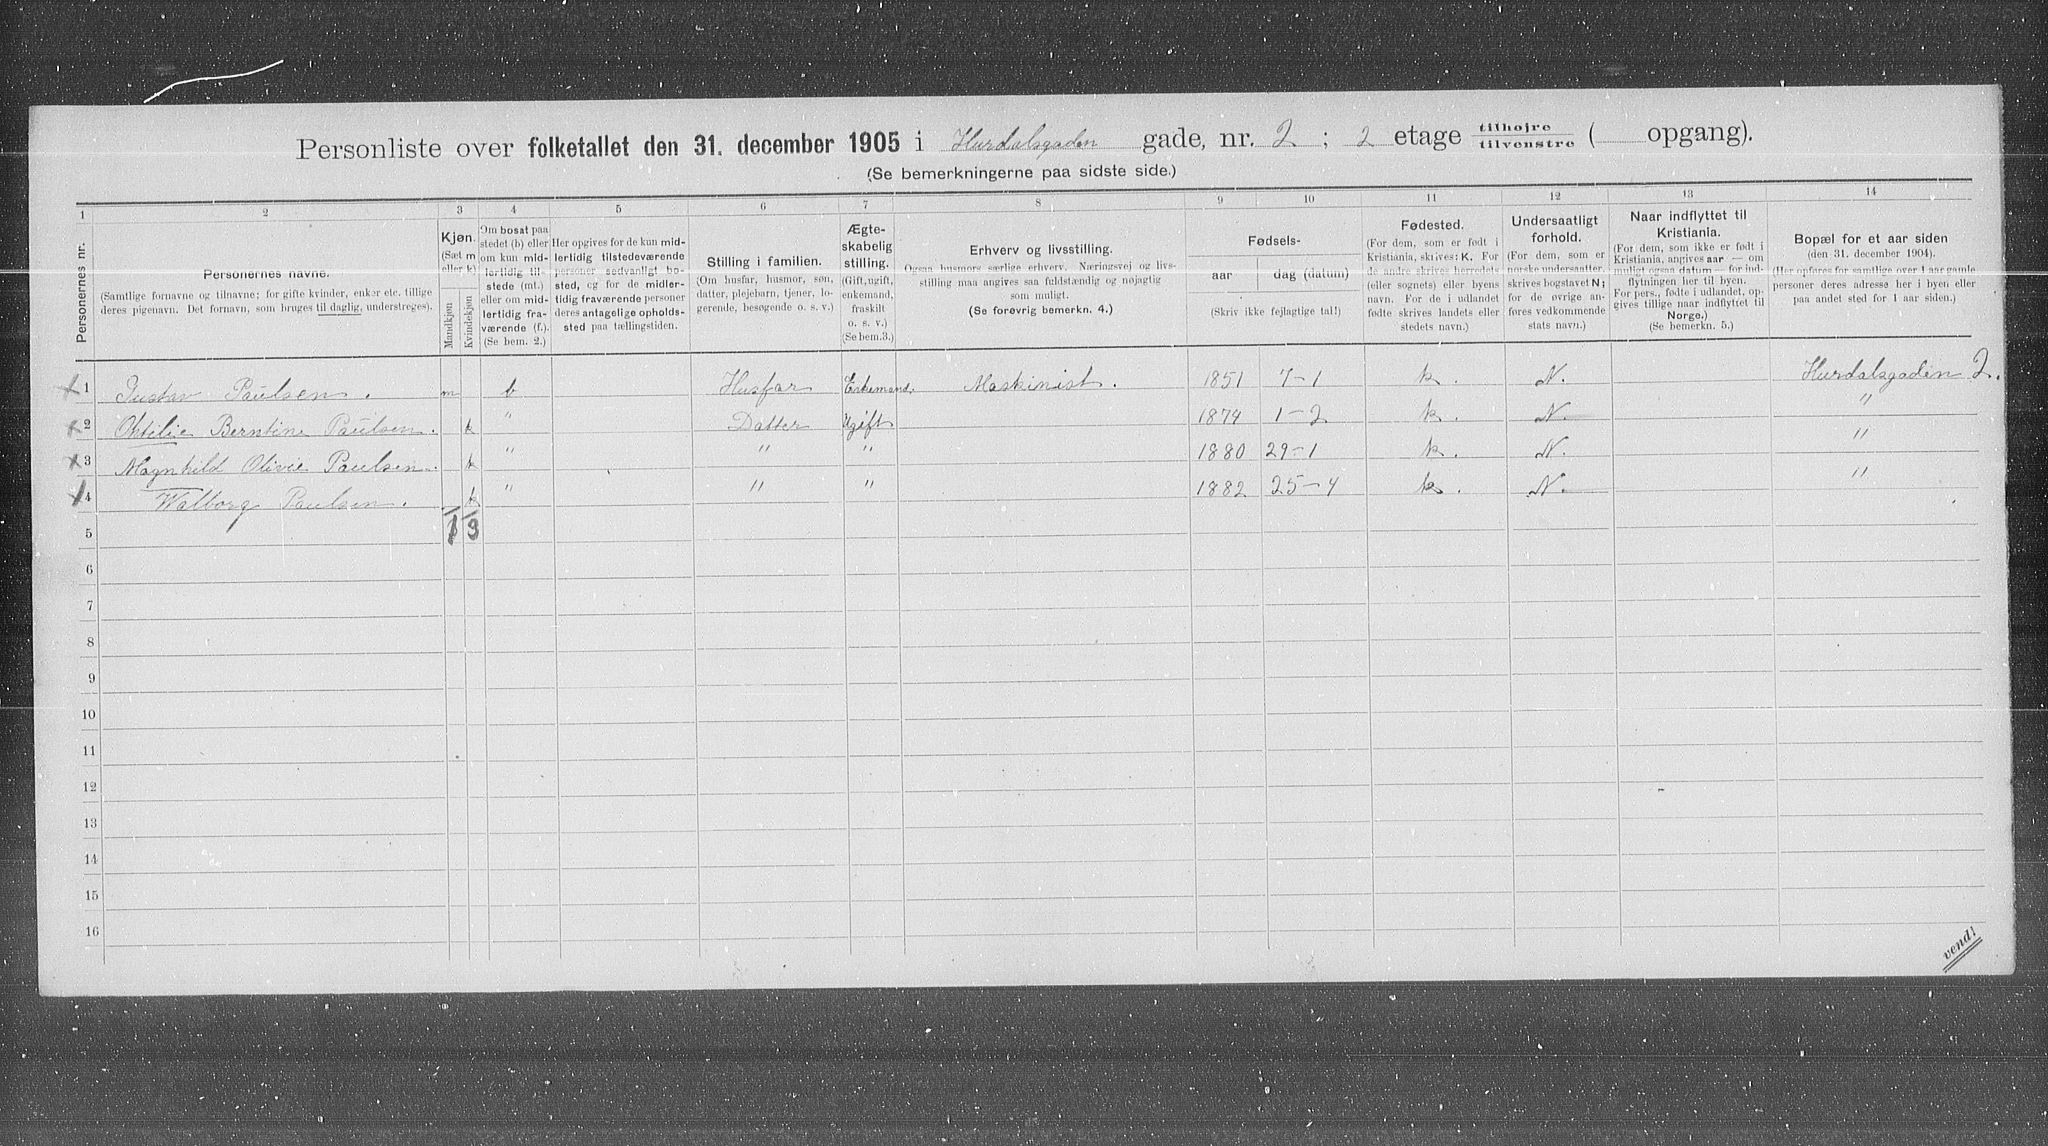 Personliste over folketallet den 31. december 1905 i Hurdalsgaden gade, nr. 2 ; 2 etage tilhøjre tilvenstre ( opgang).
(Se bemerkningerne paa sidste side.)
1 2 3 4 5 6 7 8 9 10 11 12 13 14
Personernes nr.
Personernes navne.
(Samtlige fornavne og tilnavne; for gifte kvinder, enker etc. tillige
deres pigenavn. Det fornavn, som bruges til daglig, understreges).
Kjøn.
(Sæt m
eller k)
Mandkjøn
Kvindekjøn
Om bosat paa
stedet (b) eller
om kun mid-
lertidig til-
stede (mt.)
eller om mid-
lertidig fra-
værende (f.).
(Se bem. 2.)
Her opgives for de kun mid-
lertidig tilstedeværende
personer sedvanligt bo-
sted, og for de midler-
tidig fraværende personer
deres antagelige opholds-
sted paa tællingstiden.
Stilling i familien.
(Om husfar, husmor, søn,
datter, plejebarn, tjener, lo-
gerende, besøgende o. s. v.)
Ægte-
skabelig
stilling.
(Gift, ugift,
enkemand,
fraskilt
o. s. v.)
(Se bem.3.)
Erhverv og livsstilling.
Ogsaa husmors særlige erhverv. Næringsvej og livs-
stilling maa angives saa fuldstændig og nøjagtig
som muligt.
(Se forøvrig bemerkn. 4.)
Fødsels-
aar dag (datum)
(Skriv ikke fejlagtige tal!)
Fødested.
(For dem, som er født i
Kristiania, skrives: K. For
de andre skrives herredets
(eller sognets) eller byens
navn. For de i udlandet
fødte skrives landets eller
stedets navn.)
Undersaatligt
forhold.
(For dem, som er
norske undersaatter,
skrives bogstavet N;
for de øvrige an-
føres vedkommende
stats navn.)
Naar indflyttet til
Kristiania.
(For dem, som ikke er født i
Kristiania, angives aar — om
muligt ogsaa datum — for ind-
flytningen her til byen.
For pers., fødte i udlandet, op-
gives tillige naar indflyttet til
Norge.)
(Se bemerkn. 5.)
Bopæl for et aar siden
(den 31. december 1904).
(Her opføres for samtlige over 1 aar gamle
personer deres adresse her i byen eller
paa andet sted for 1 aar siden.)
x 1 Gustav Paulsen. m b Husfar Enkemand. Maskinist. 1851 7-1 k. N. Hurdalsgaden 2.
x 2 Ottilie Berntine Paulsen. k " Datter Ugift 1874 1-2 k. N. "
x 3 Magnhild Olivie Paulsen. k " " " 1880 29-1 k. N. "
x 4 Walborg Paulsen. k " " " 1882 25-4 k. N. "
5 1 3
6
7
8
9
10
11
12
13
14
15
16
vend!